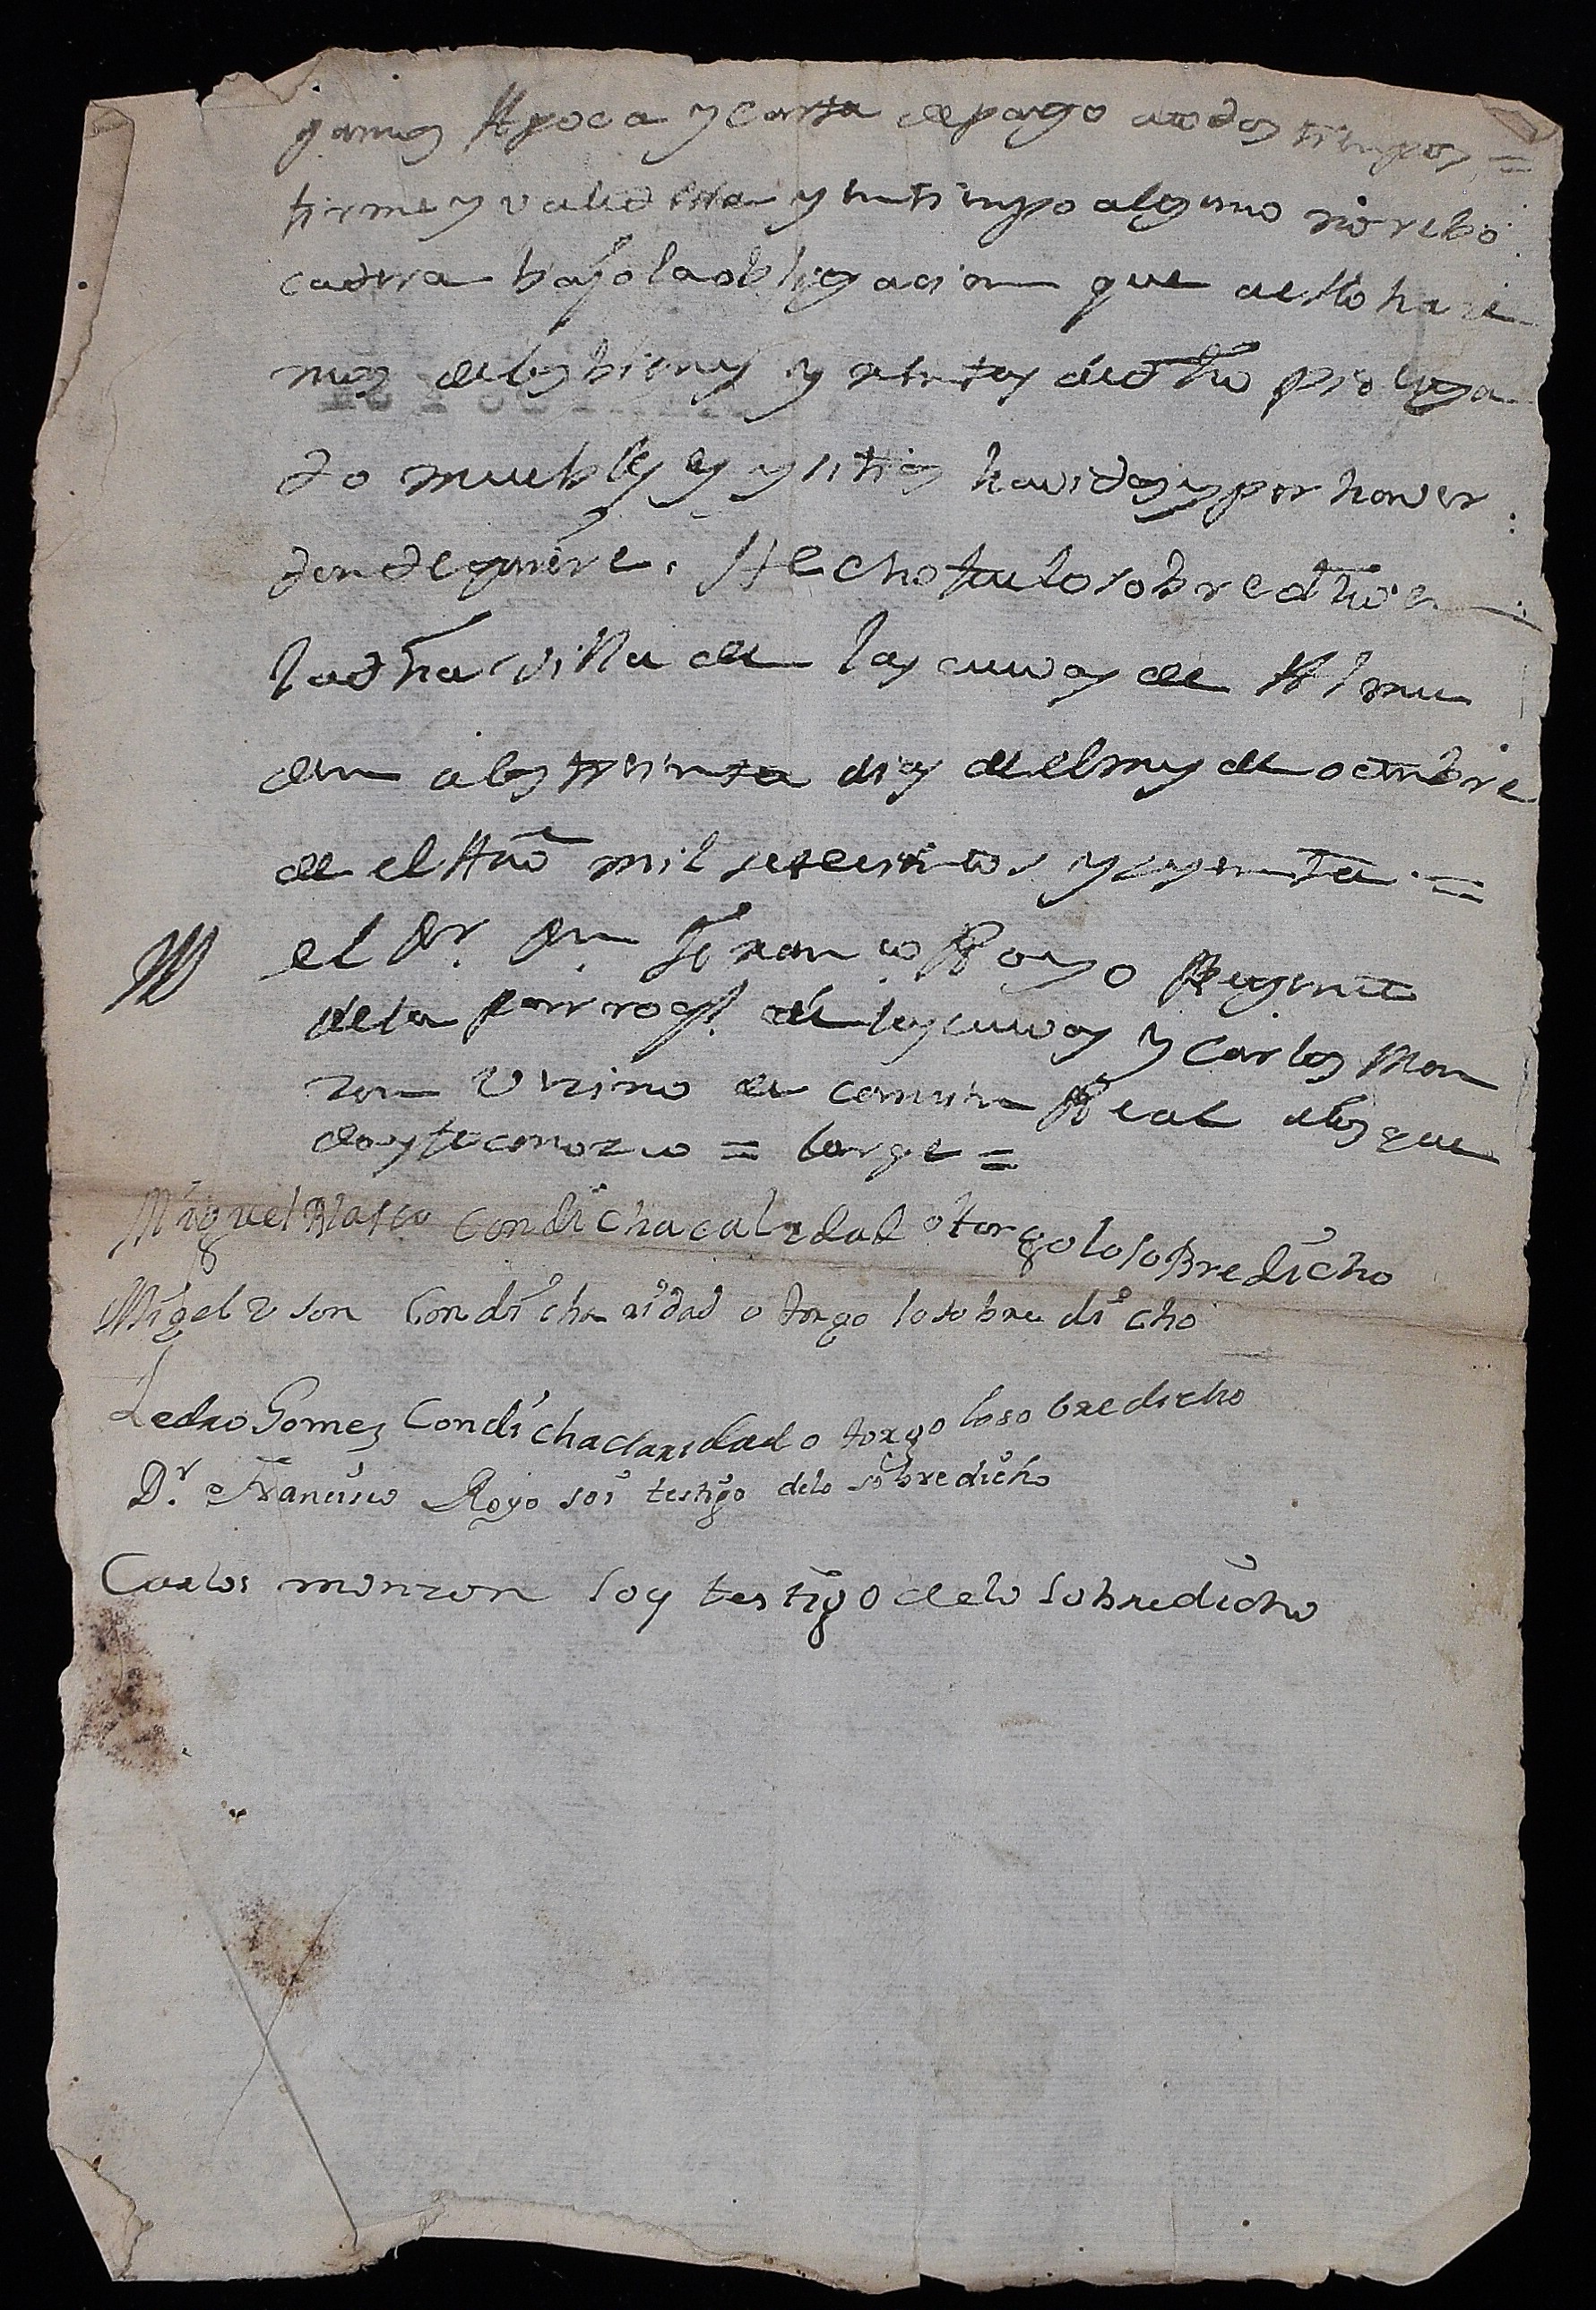 gamos Apoca y carta de pago a todos tiempos =
firme y valedera y en tiempo alguno no rebo
cadera bajo la obligacion que a ello haze
mos de los bienes y rentas de dho
do muebles y sitios havidos y por haver
donde quiere. Hecho fue lo sobredho en
la dha villa de las cuevas de Almu
den a los treinta dias de el mes de octubre
de el Año mil setecientos y sesenta =
el Dr. Dn Franco Royo Regente
de la parroql. de las cuevas y Carlos Mon
zon vezino de Camin Real a los que
doy fe conozco = large =
Miguel Blasco con dicha calidad otorgo lo sobredicho
Migel Uson con dicha ridad otorgo lo sobre dicho
Pedro Gomez con dicha claridad otorgo lo sobredicho
Dr. Francisco Royo soi testigo de lo sobredicho
Carlos monzon soy testigo de lo sobredicho